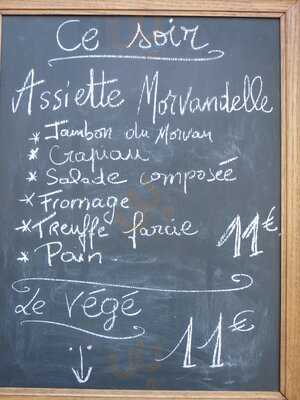 Ce soir
Assiette Morvandelle
* Jambon du Morvan
* Crapiau
* Salade composée
* Fromage
* Treuffe farcie 11€
* Pain
Le Végé
11€